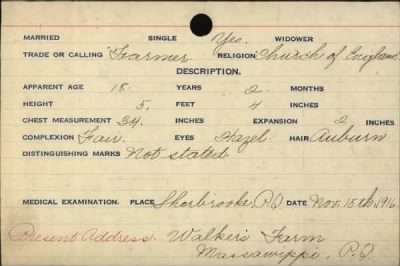 MARRIED SINGLE Yes. WIDOWER
TRADE OR CALLING Farmer RELIGION Church of England
DESCRIPTION.
APPARENT AGE 18 YEARS 2 MONTHS
HEIGHT 5 FEET 4 INCHES
CHEST MEASUREMENT 34 INCHES EXPANSION 2 INCHES
COMPLEXION Fair EYES Hazel HAIR Auburn
DISTINGUISHING MARKS Not stated
MEDICAL EXAMINATION. PLACE Sherbrooke, P.Q. DATE Nov. 15th, 1916
Present Address. Walker's Farm
Massawippi, P.Q.